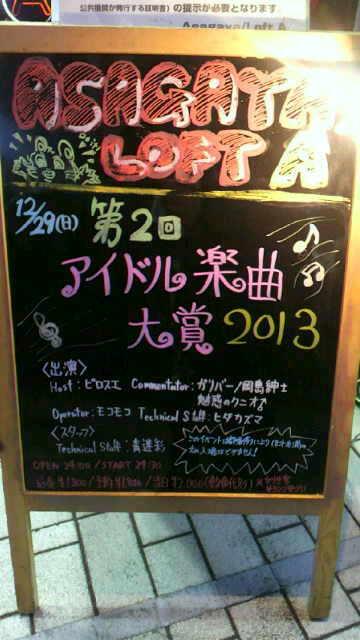 公共機関が発行する証明書)の提示が必要となります
Asagaya/Loft A
ASAGAYA
LOFT A
12/29(日) 第2回
アイドル楽曲
大賞2013
〈出演〉
Host:ピロスエ Commentator:ガリバー/岡島紳士
魅惑のクニオ
Operator:モコモコ Technical Staff:ヒダカズマ
〈スタッフ〉
Technical Staff:青達彩
このイベントは
OPEN 24:00/START 24:30